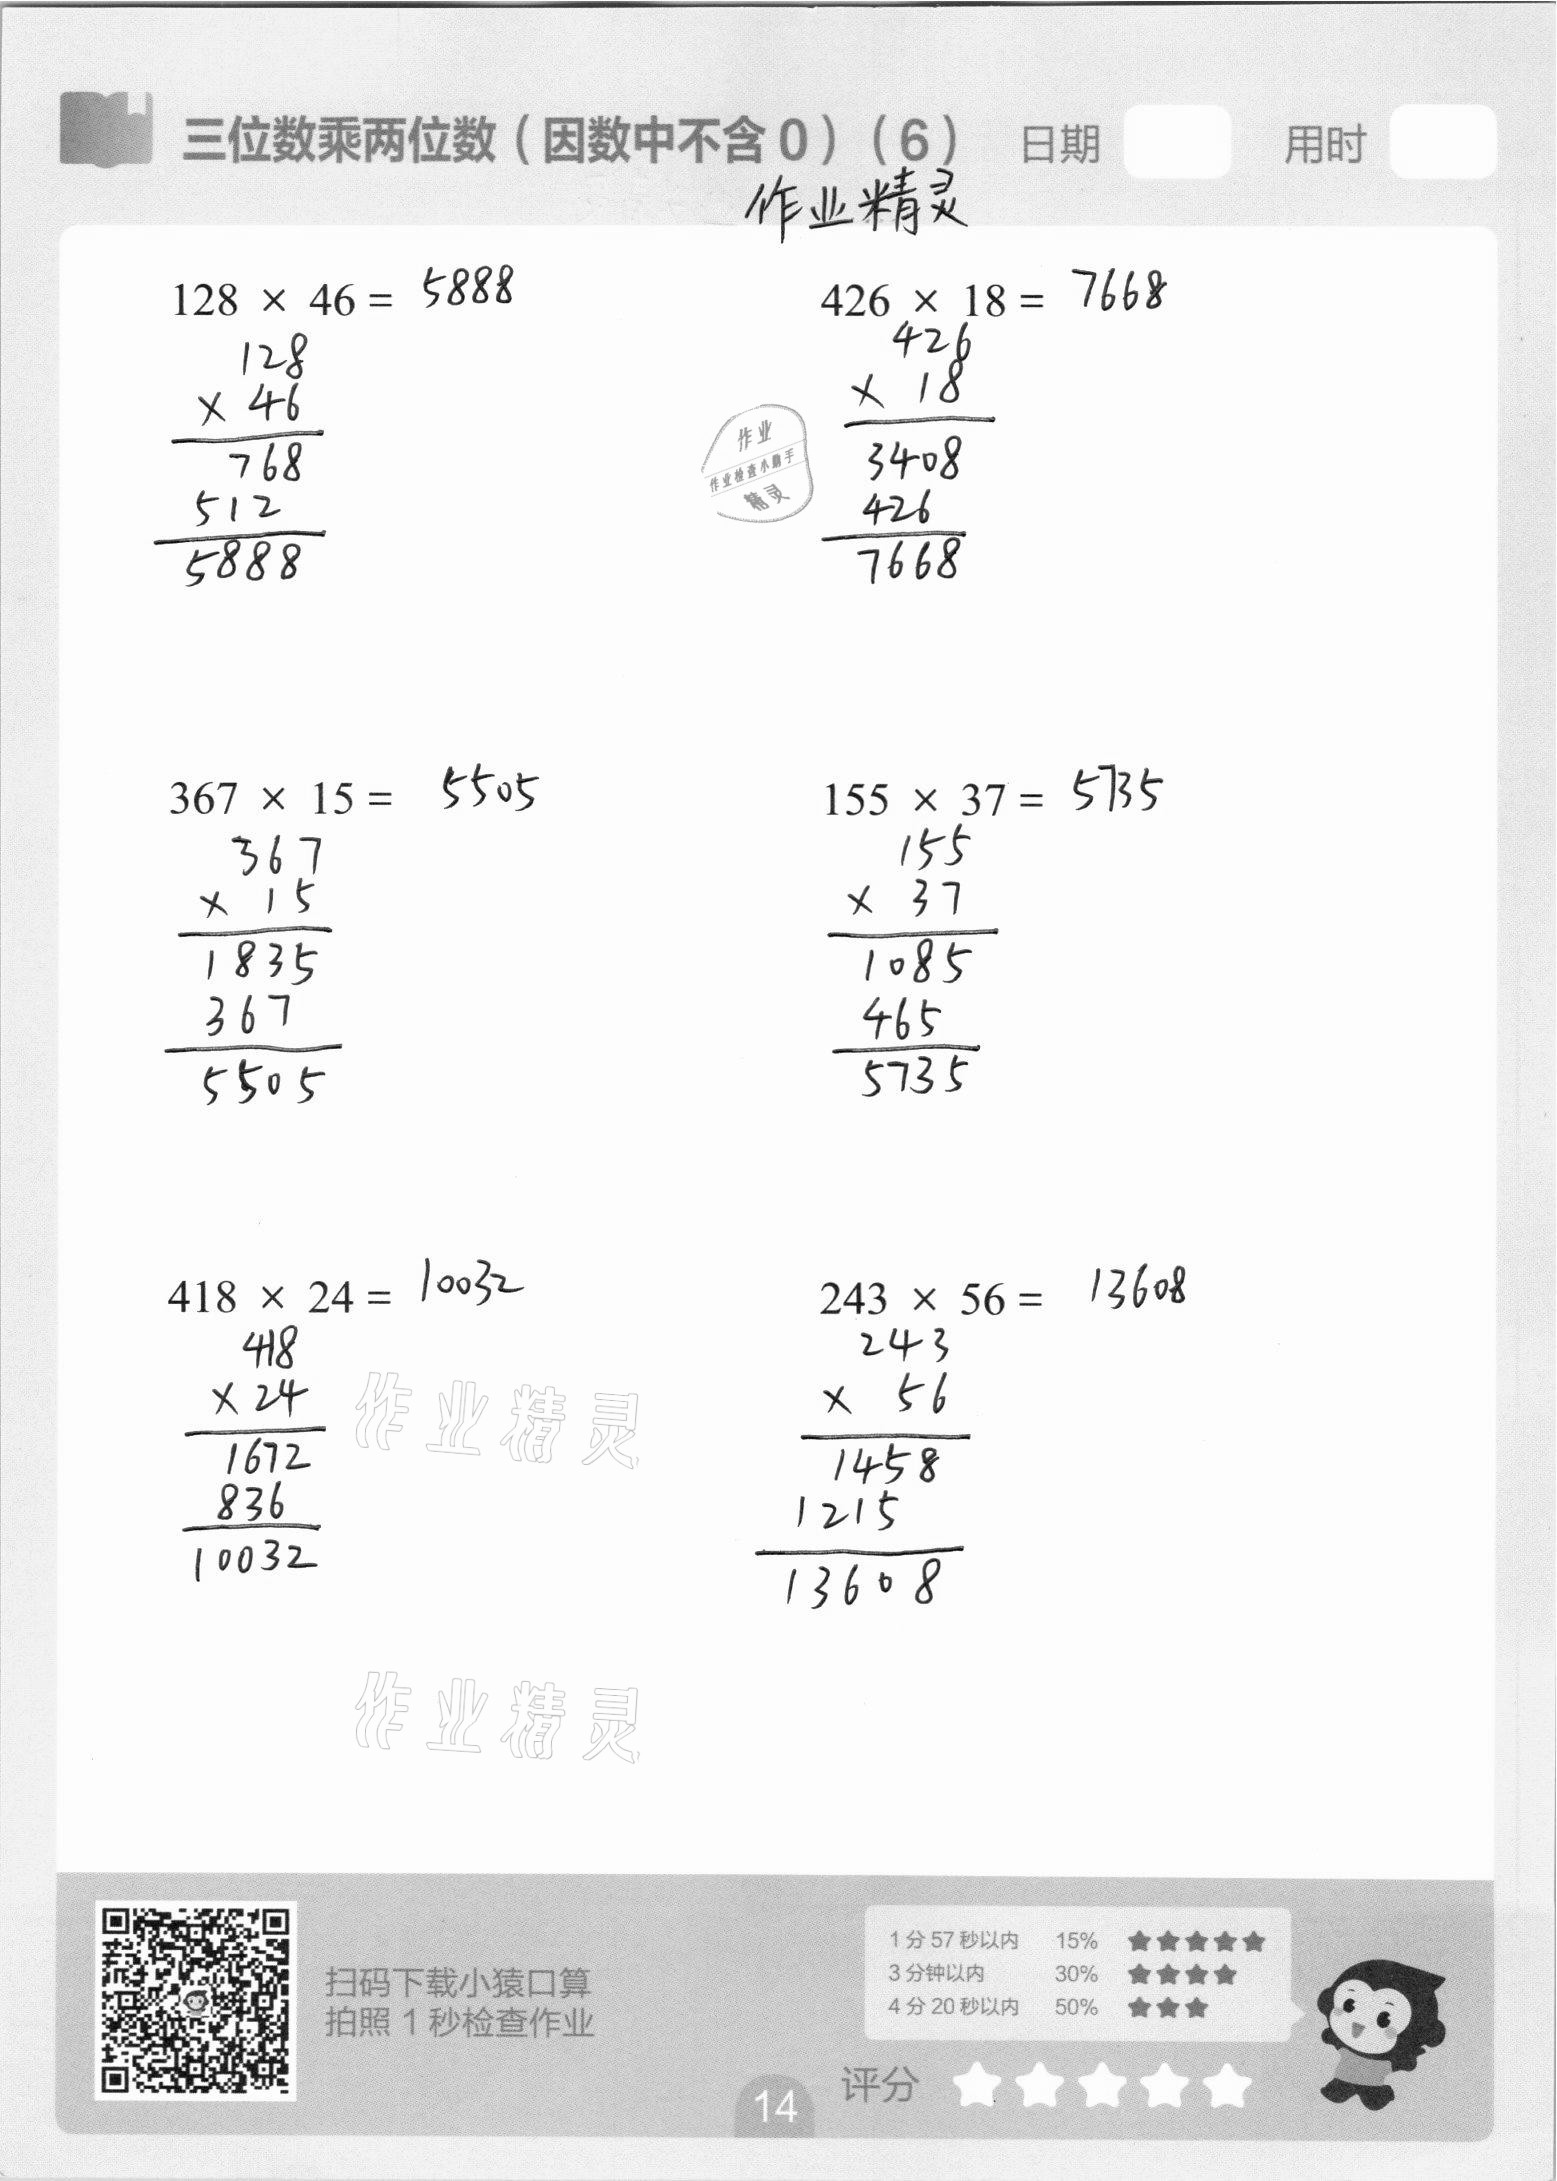 三位数乘两位数（因数中不含 0）（6） 日期 用时
作业精灵
128 × 46 = 5888
128
× 46
768
512
5888
426 × 18 = 7668
426
× 18
3408
426
7668
作业
作业检查小助手
精灵
367 × 15 = 5505
367
× 15
1835
367
5505
155 × 37 = 5735
155
× 37
1085
465
5735
418 × 24 = 10032
418
× 24
1672
836
10032
243 × 56 = 13608
243
× 56
1458
1215
13608
作业精灵
作业精灵
扫码下载小猿口算
拍照 1 秒检查作业
1 分 57 秒以内 15% ★★★★★
3 分钟以内 30% ★★★★
4 分 20 秒以内 50% ★★★
评分
14